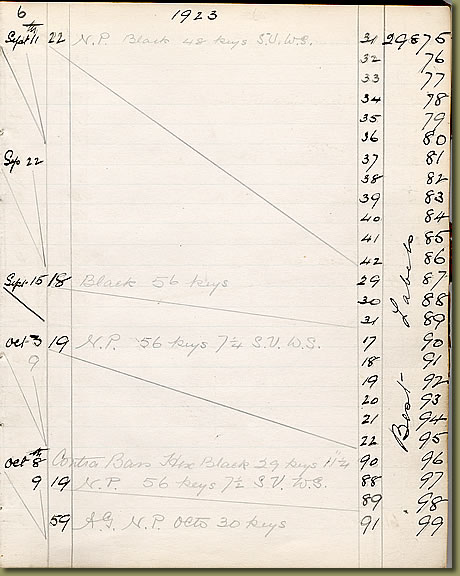 6 1923
Sept 11th 22 N.P. Black 48 keys S.V. W.S. 31 29875
32 76
33 77
34 78
35 79
36 80
Sep 22 37 81
38 82
39 83
40 84
41 85
42 86
Sept 15 18 Black 56 keys 29 87
30 88
31 89
Oct 3 19 N.P. 56 keys 7¼ S.V. W.S. 17 90
9 18 91
19 92
20 93
21 94
22 95
Best Labels
Oct 8th Contra Bass Hex Black 29 keys 11¼ 90 96
9 19 N.P. 56 keys 7½ S.V. W.S. 88 97
89 98
59 A.G. N.P. Octo 30 keys 91 99